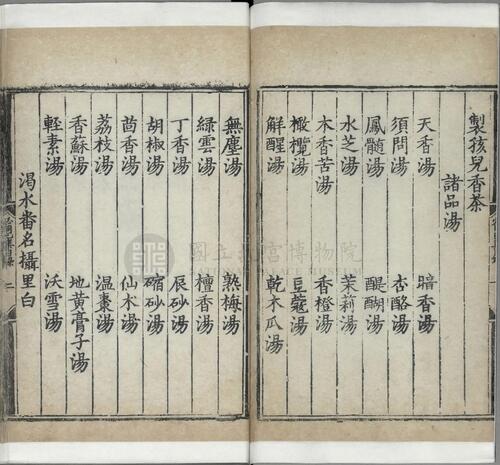 製孩兒香茶
諸品湯
天香湯 暗香湯
須問湯 杏酪湯
鳳髓湯 醍醐湯
水芝湯 茉莉湯
木香苦湯 香橙湯
橄欖湯 豆蔻湯
解酲湯 乾木瓜湯
無塵湯 熟梅湯
綠雲湯 檀香湯
丁香湯 辰砂湯
胡椒湯 縮砂湯
茴香湯 仙朮湯
荔枝湯 温棗湯
香蘇湯 地黄膏子湯
輕素湯 沃雪湯
渴水番名攝里白
國立故宮博物院